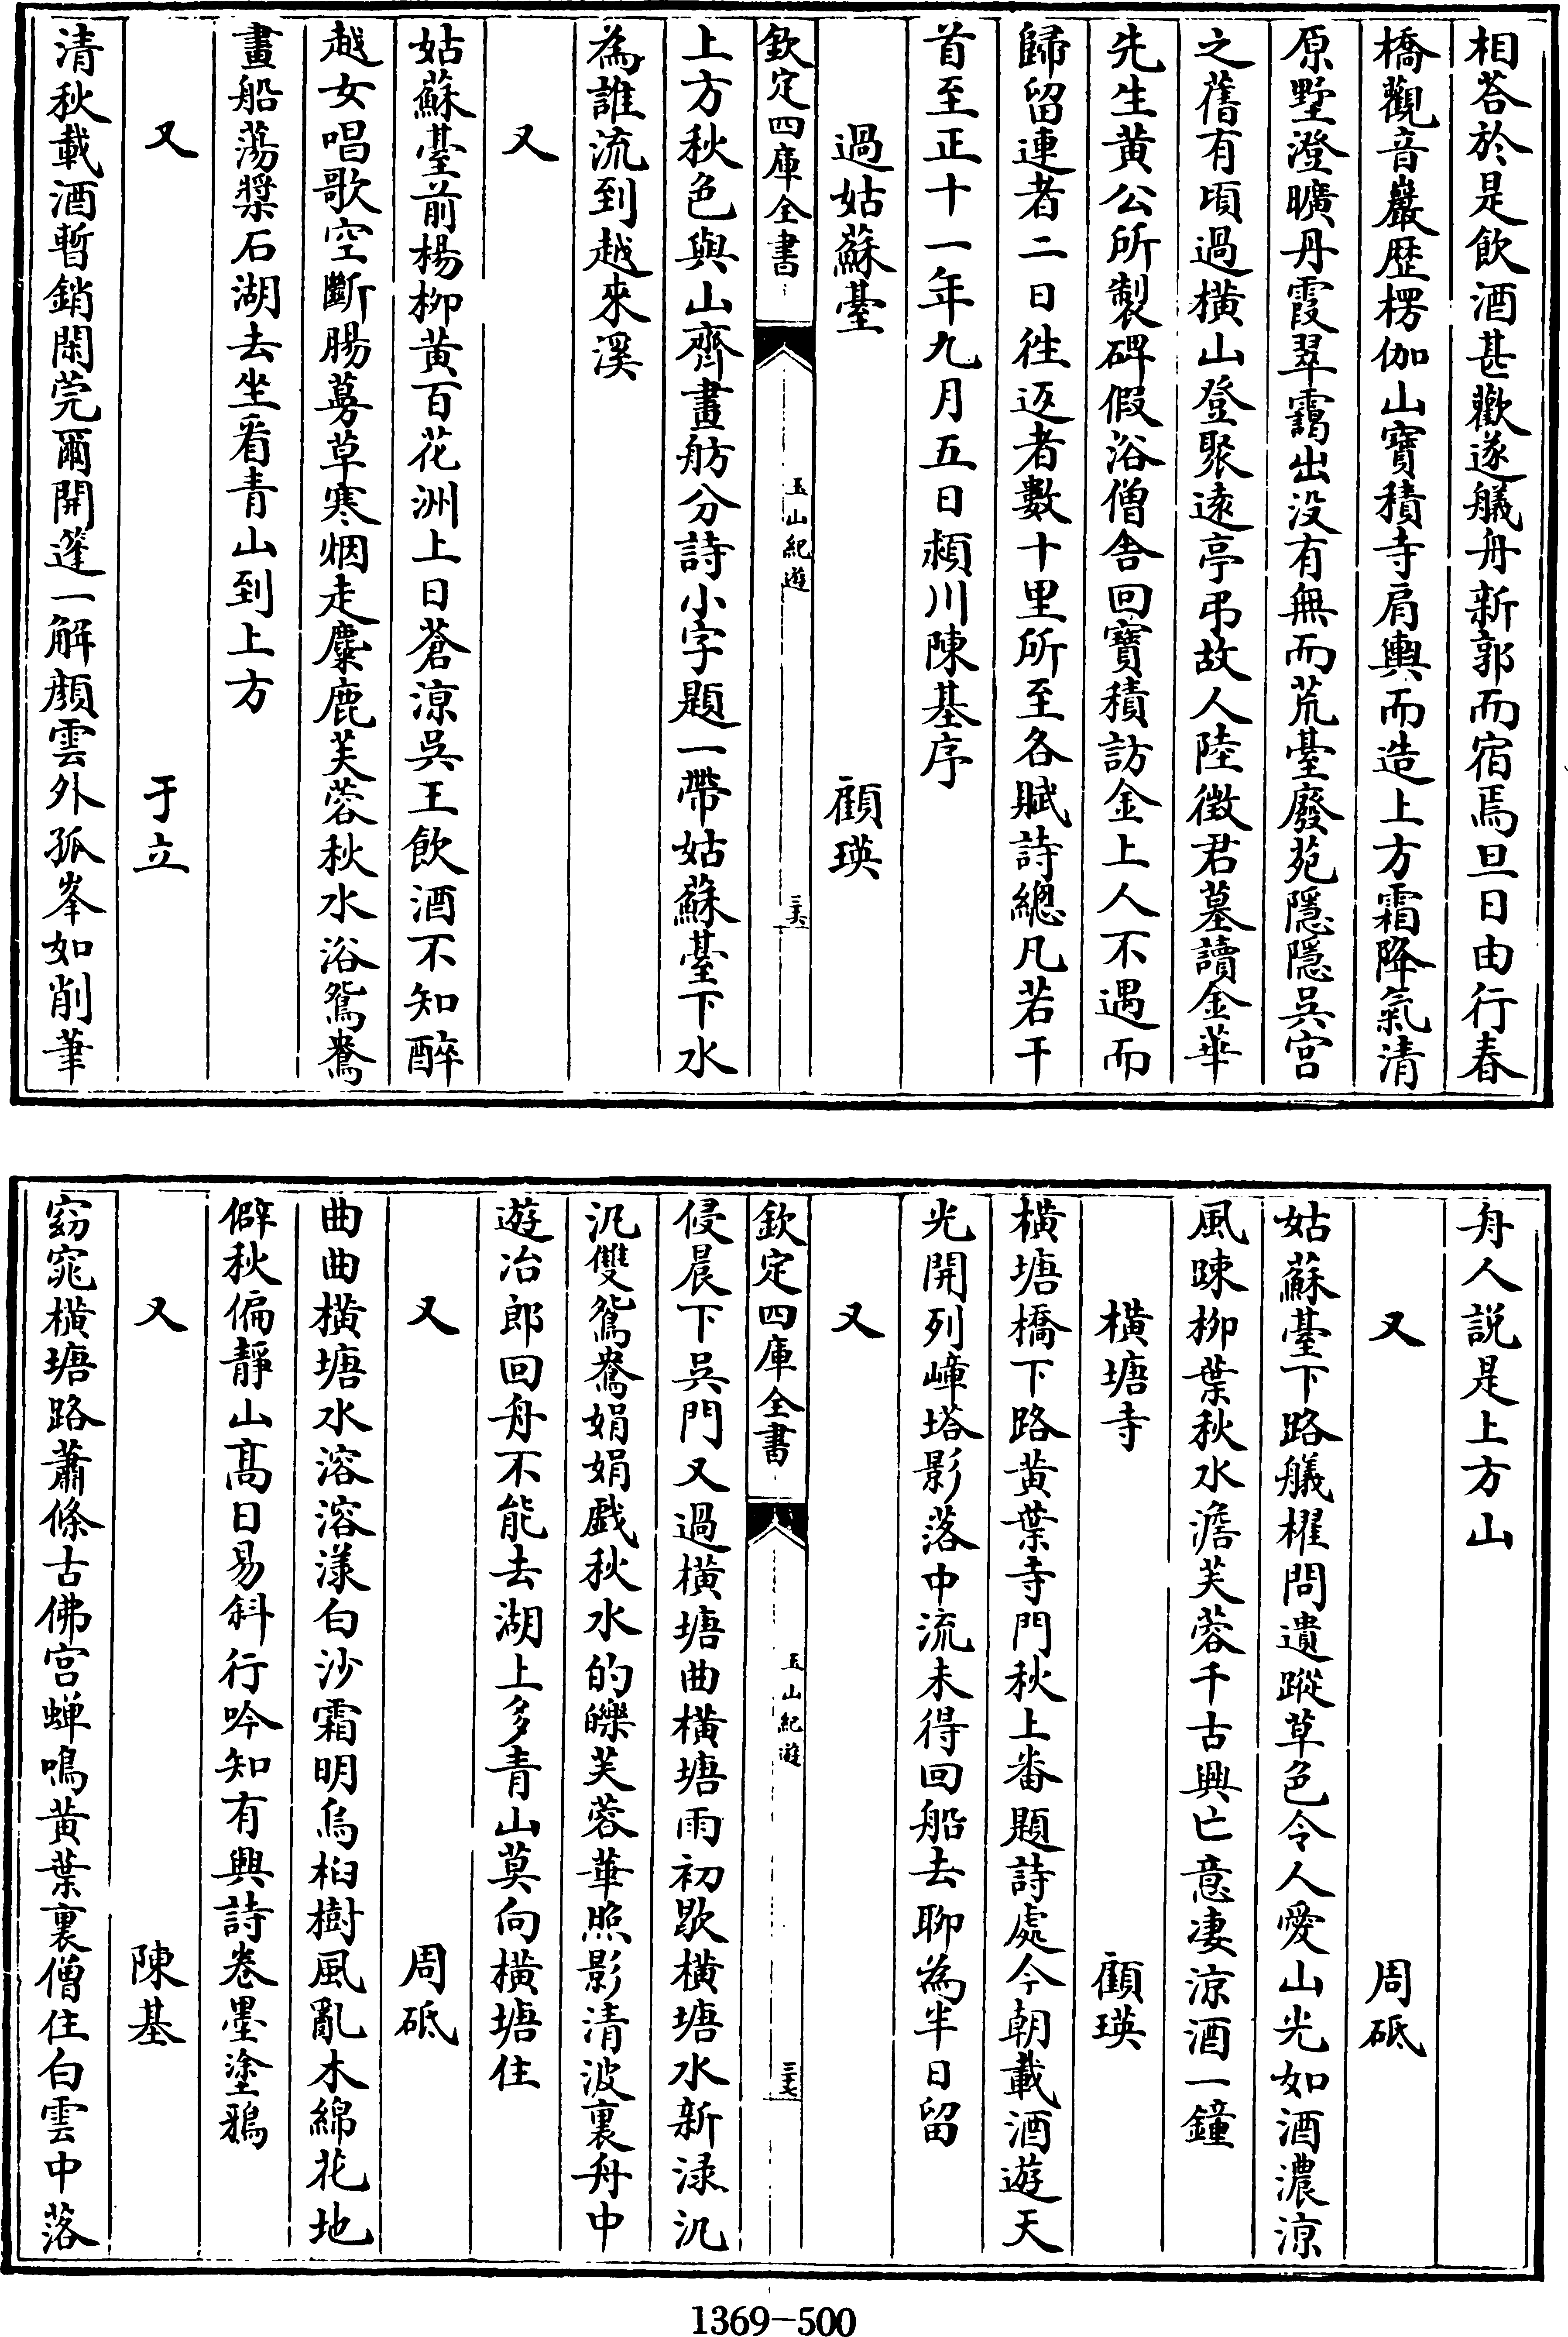 相荅於是飲酒甚歡遂艤舟新郭而宿焉旦日由行春
橋觀音巖歷楞伽山寶積寺肩輿而造上方霜降氣清
原墅澄曠丹霞翠靄出没有無而荒臺廢苑隱隱吳宫
之舊有頃過橫山登聚逺亭弔故人陸徴君墓讀金華
先生黄公所製碑假浴僧舎回寳積訪金上人不遇而
歸留連者二日徃返者數十里所至各賦詩總凡若干
首至正十一年九月五日潁川陳基序
過姑蘇臺 顧瑛
欽定四庫全書 玉山紀遊 三六
上方秋色與山齊畫舫分詩小字題一帶姑蘇臺下水
為誰流到越來溪
又
姑蘇臺前楊柳黄百花洲上日蒼涼吳王飲酒不知醉
越女唱歌空斷腸蔓草寒烟走麋鹿芙蓉秋水浴鴛鴦
畫船蕩槳石湖去坐看青山到上方
又 于立
清秋載酒暫銷閑莞爾開篷一解顔雲外孤峯如削筆
舟人説是上方山
又 周砥
姑蘇臺下路艤櫂問遺蹤草色令人愛山光如酒濃涼
風踈柳葉秋水澹芙蓉千古興亡意凄涼酒一鐘
橫塘寺 顧瑛
橫塘橋下路黄葉寺門秋上番題詩處今朝載酒遊天
光開列嶂塔影落中流未得回船去聊為半日留
又
欽定四庫全書 玉山紀遊 三七
侵晨下吳門又過橫塘曲橫塘雨初歇橫塘水新渌汎
汎雙鴛鴦娟娟戲秋水的皪芙蓉華照影清波裏舟中
遊冶郎回舟不能去湖上多青山莫向橫塘住
又 周砥
曲曲橫塘水溶溶漾白沙霜明烏桕樹風亂木綿花地
僻秋偏靜山髙日易斜行吟知有興詩卷墨塗鴉
又 陳基
窈窕橫塘路蕭條古佛宫蝉鳴黄葉裏僧住白雲中落
1369—500